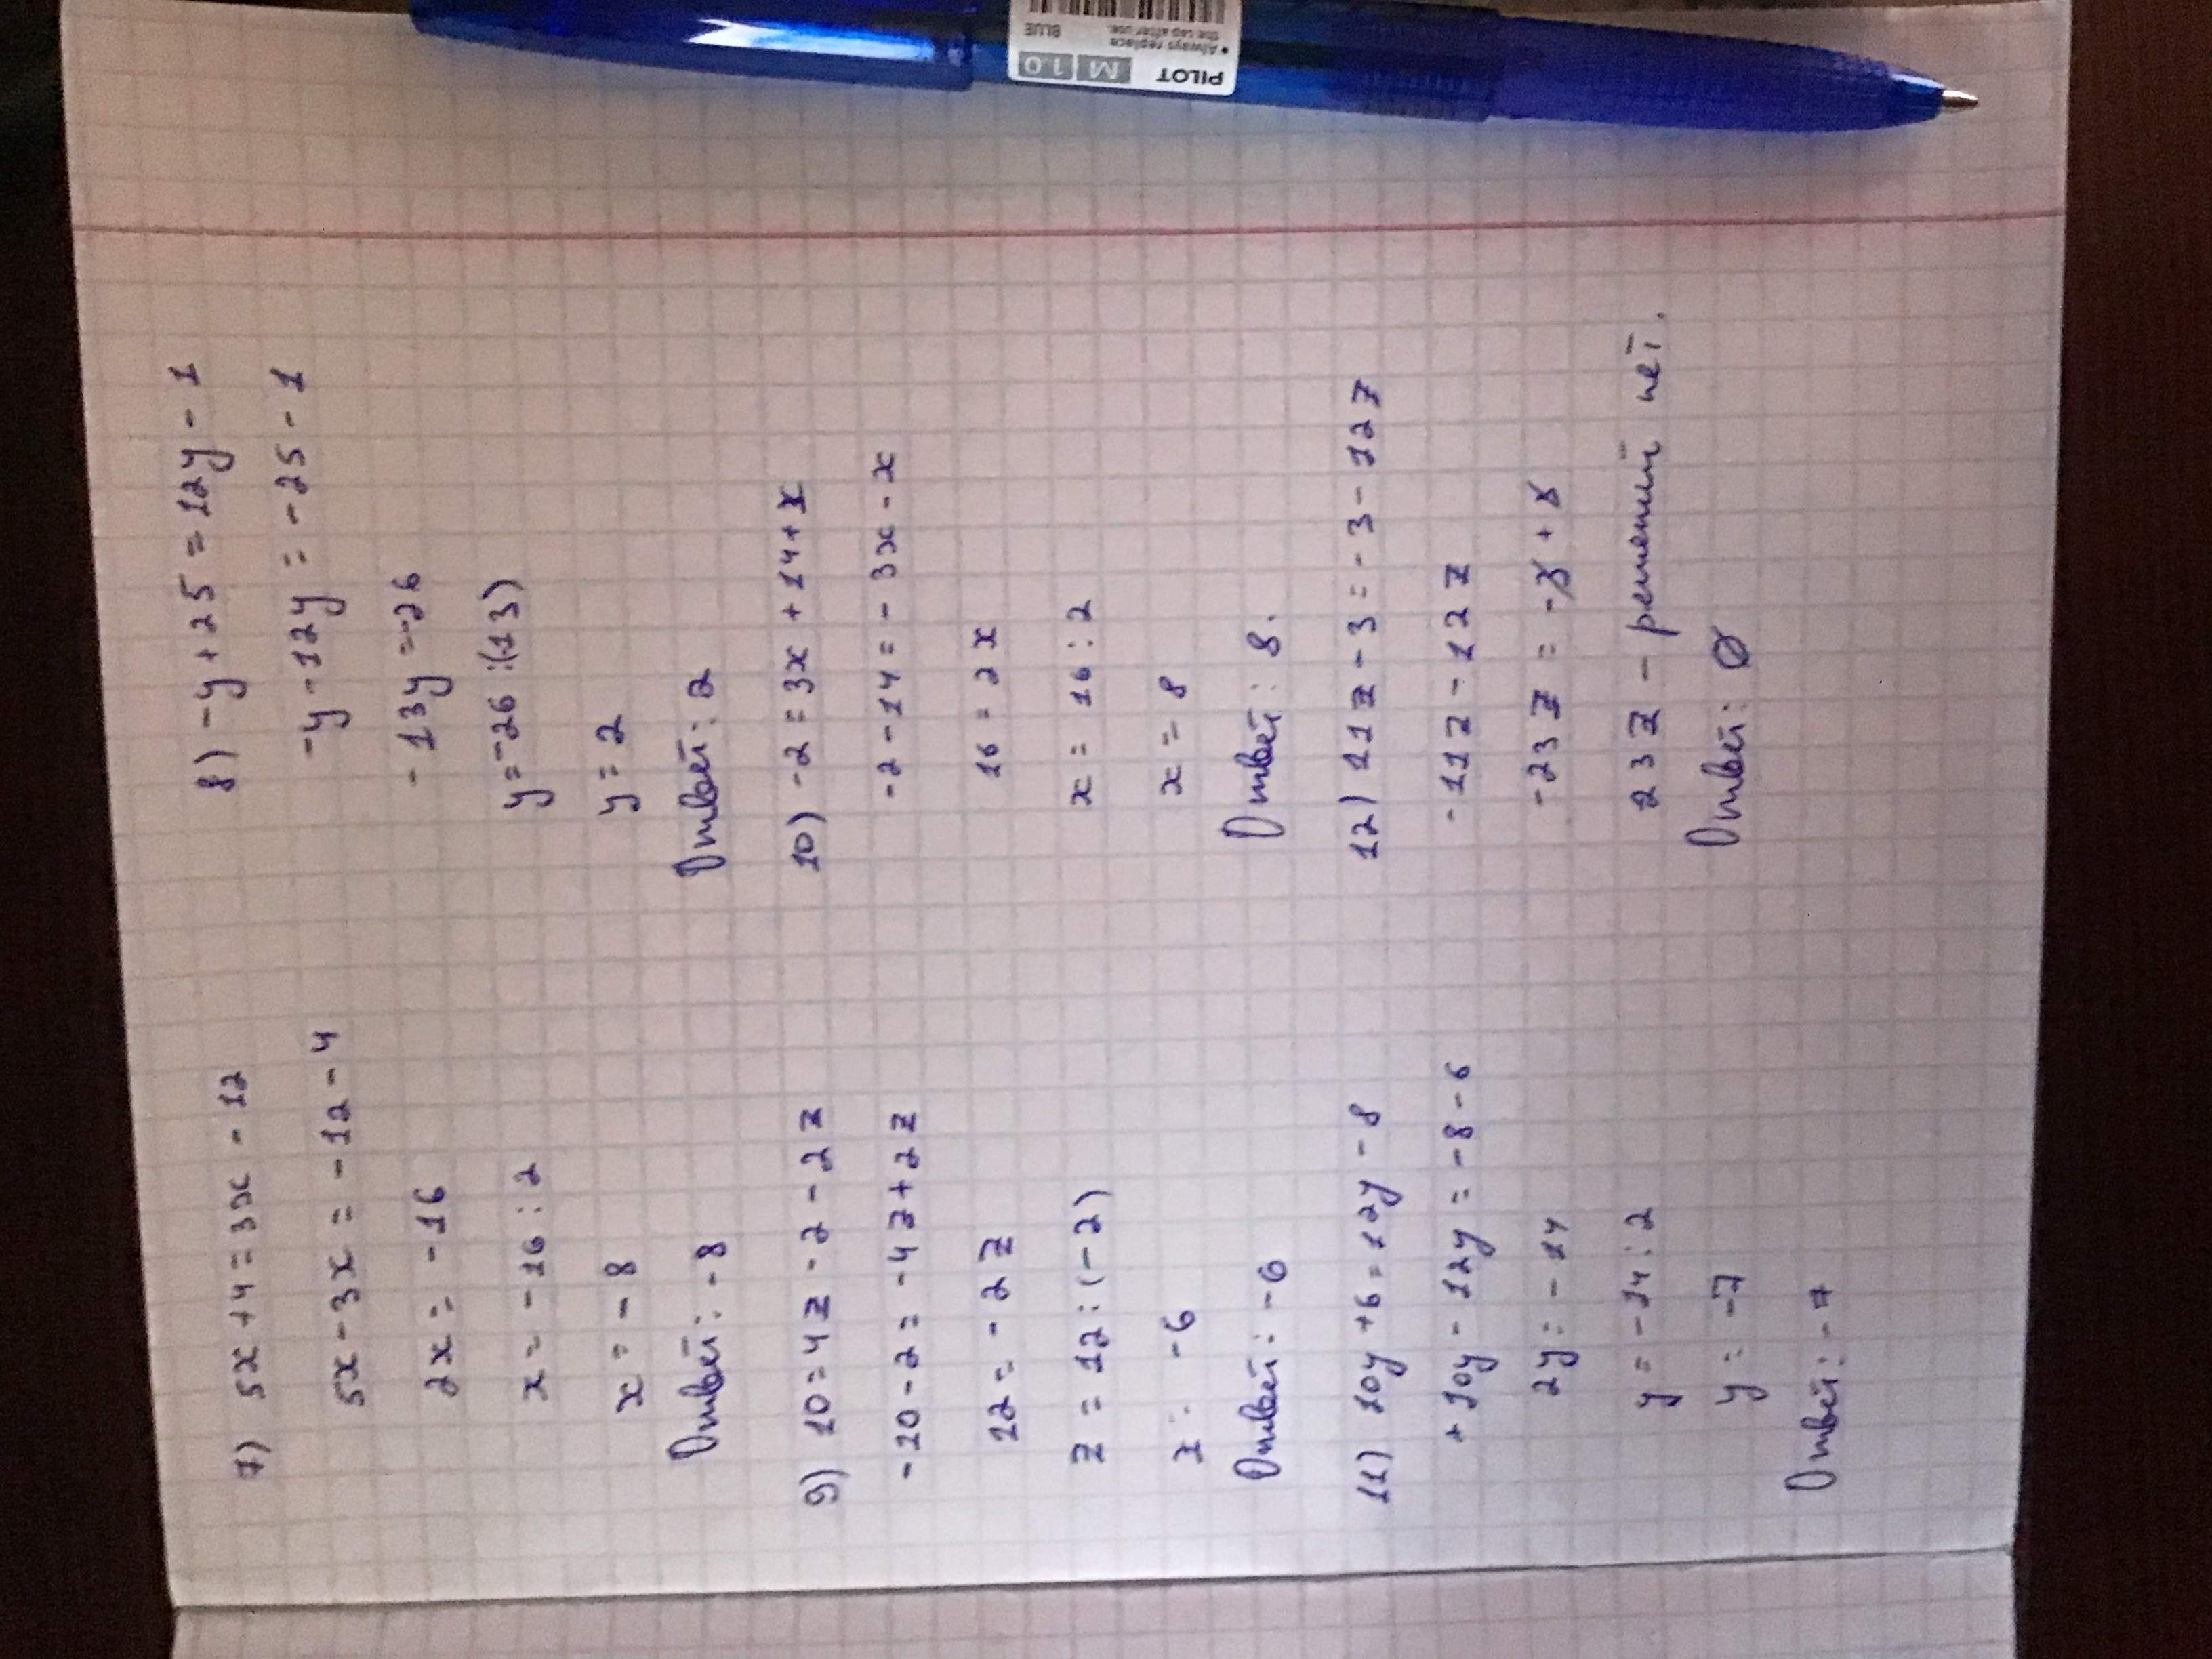 7) 5x + 4 = 3x - 12
5x - 3x = -12 - 4
2x = -16
x = -16 : 2
x = -8
Ответ: -8
8) -y + 25 = 12y - 1
-y - 12y = -25 - 1
-13y = -26
y = -26 : (13)
y = 2
Ответ: 2
9) 10 = 4z - 2 - 2z
-10 - 2 = -4z + 2z
12 = -2z
z = 12 : (-2)
z = -6
Ответ: -6
10) -2 = 3x + 14 + x
-2 - 14 = -3x - x
16 = 2x
x = 16 : 2
x = 8
Ответ: 8.
11) 10y + 6 = 12y - 8
+ 10y - 12y = -8 - 6
2y = -14
y = -14 : 2
y = -7
Ответ: -7
12) 11z - 3 = -3 - 12z
-11z - 12z
-23z = -3 + 3
23z - решений нет.
Ответ: Ø
PILOT
M 1.0
• Always replace
the cap after use.
BLUE